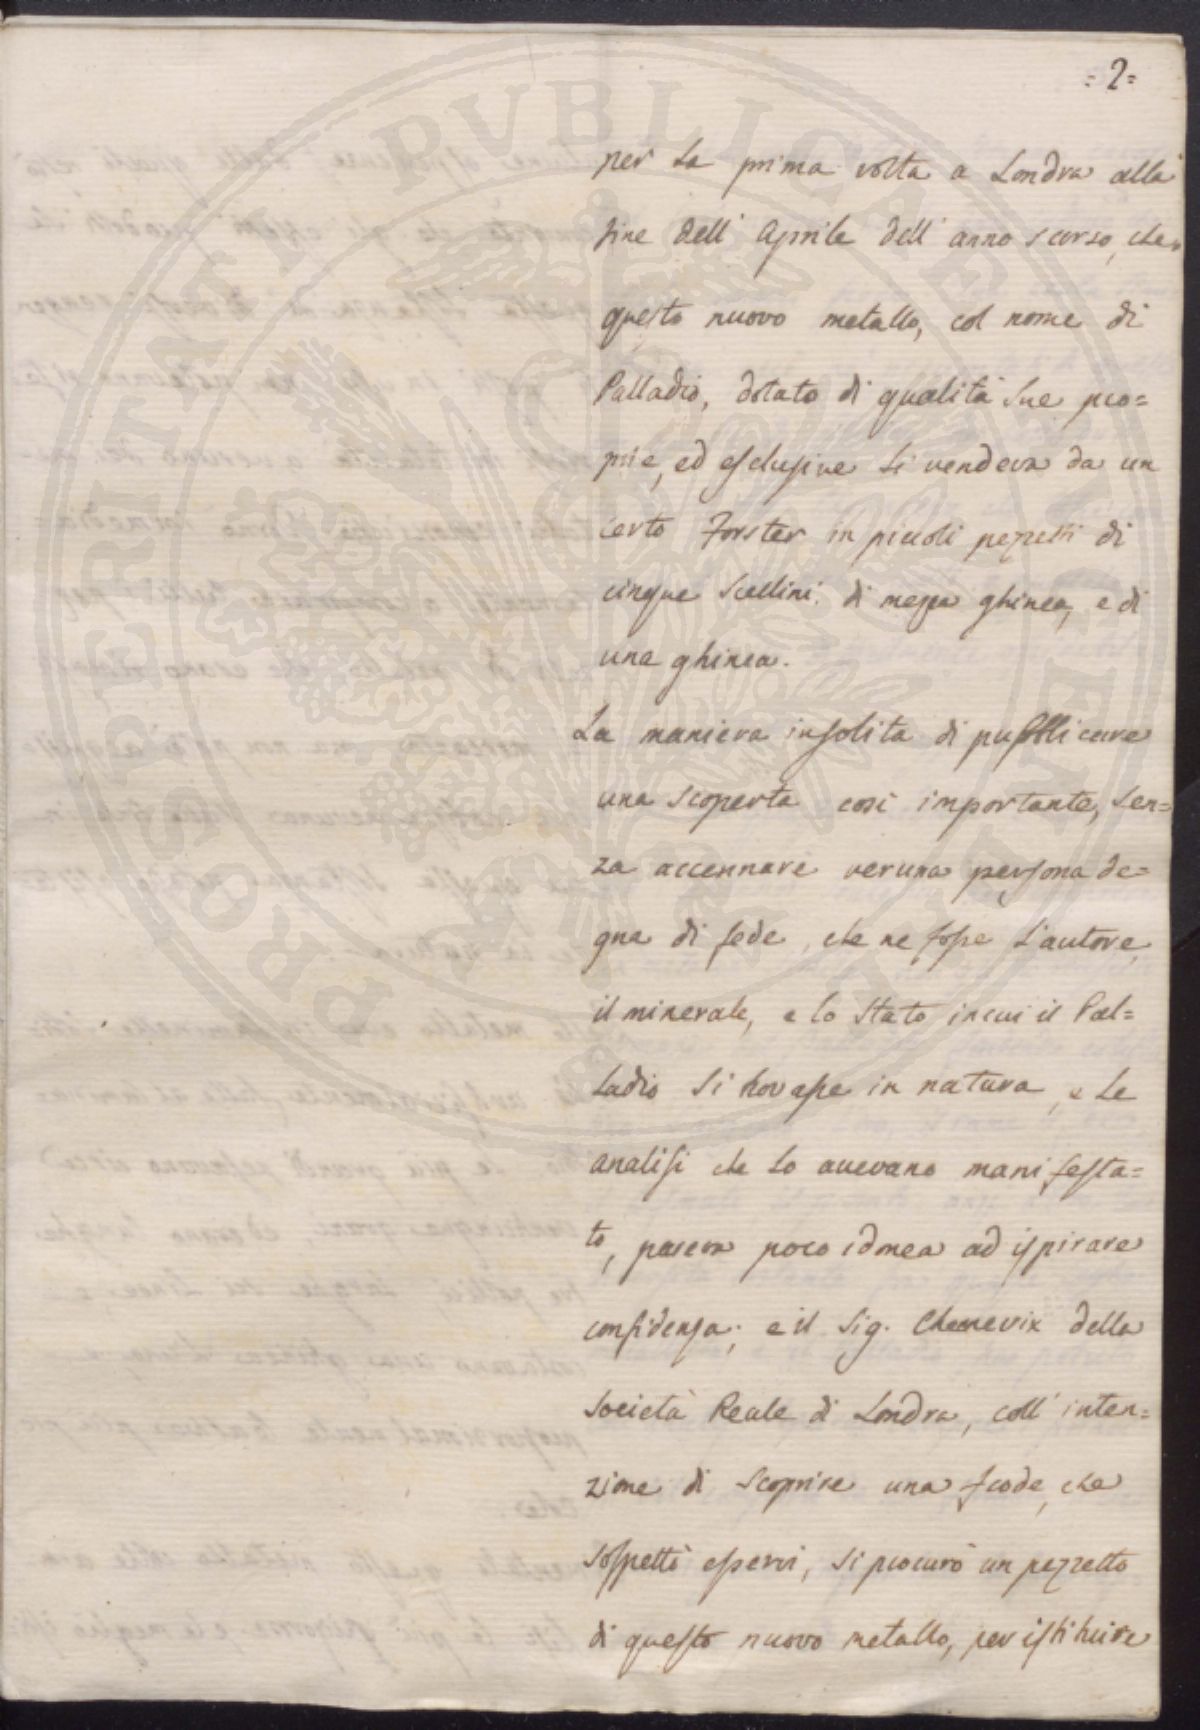 =2=
per la prima volta a Londra alla
fine dell' Aprile dell' anno scorso, che
questo nuovo metallo, col nome di
Palladio, dotato di qualità sue pro=
prie, ed esclusive si vendeva da un
certo Forster in piccoli pezzetti di
cinque Scellini, di mezza ghinea, e di
una ghinea.
La maniera insolita di pubblicare
una scoperta così importante, sen=
za accennare veruna persona de=
gna di fede, che ne fosse l'autore,
il minerale, e lo stato in cui il Pal=
ladio si trovasse in natura, e le
analisi che lo avevano manifesta=
to, pareva poco idonea ad ispirare
confidenza; e il Sig. Chenevix della
Società Reale di Londra, coll' inten=
zione di scoprire una frode, che
sospettò esservi, si procurò un pezzetto
di questo nuovo metallo, per istituire
PROSPERITATI PVBLICAE AVGENDAE